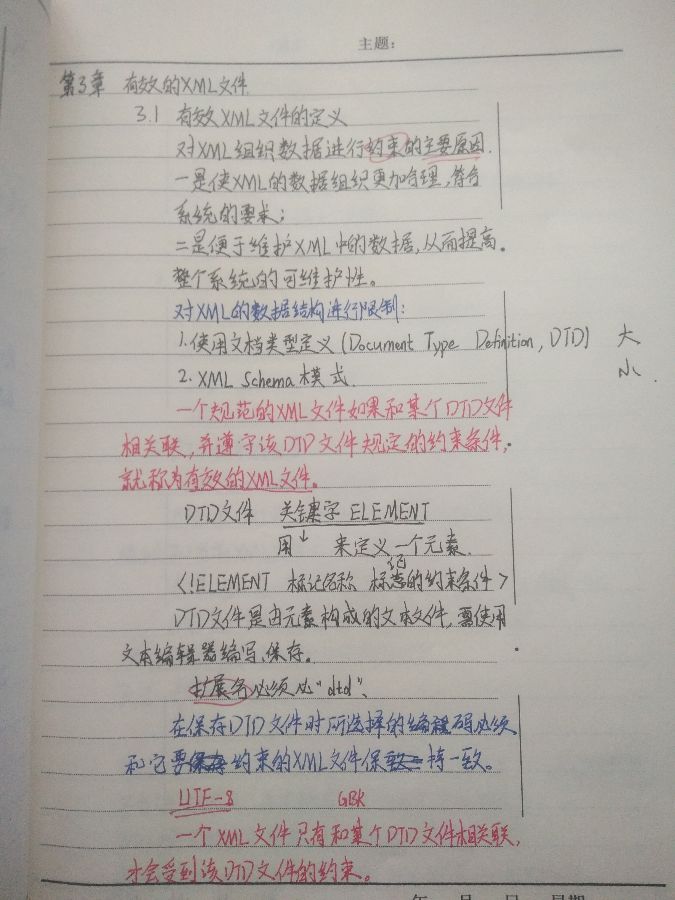 主题:
第3章 有效的XML文件
3.1 有效XML文件的定义
对XML组织数据进行约束的主要原因.
一是使XML的数据组织更加合理,符合
系统的要求;
二是便于维护XML中的数据,从而提高。
整个系统的可维护性。
对XML的数据结构进行限制:
1.使用文档类型定义(Document Type Definition, DTD) 大
2. XML Schema模式. 小.
一个规范的XML文件如果和某个DTD文件
相关联,并遵守该DTD文件规定的约束条件,
就称为有效的XML文件。
DTD文件 关键字 ELEMENT
用↓ 来定义一个元素.
记
<!ELEMENT 标记名称 标志的约束条件>
DTD文件是由元素构成的文本文件,要使用
文本编辑器编写、保存。
扩展名必须必"dtd"、
在保存DTD文件时所选择的编码必须
和它要约束的XML文件保持一致。
UTF-8 GBK
一个XML文件只有和某个DTD文件相关联,
才会受到该DTD文件的约束。
年 月 日 星期